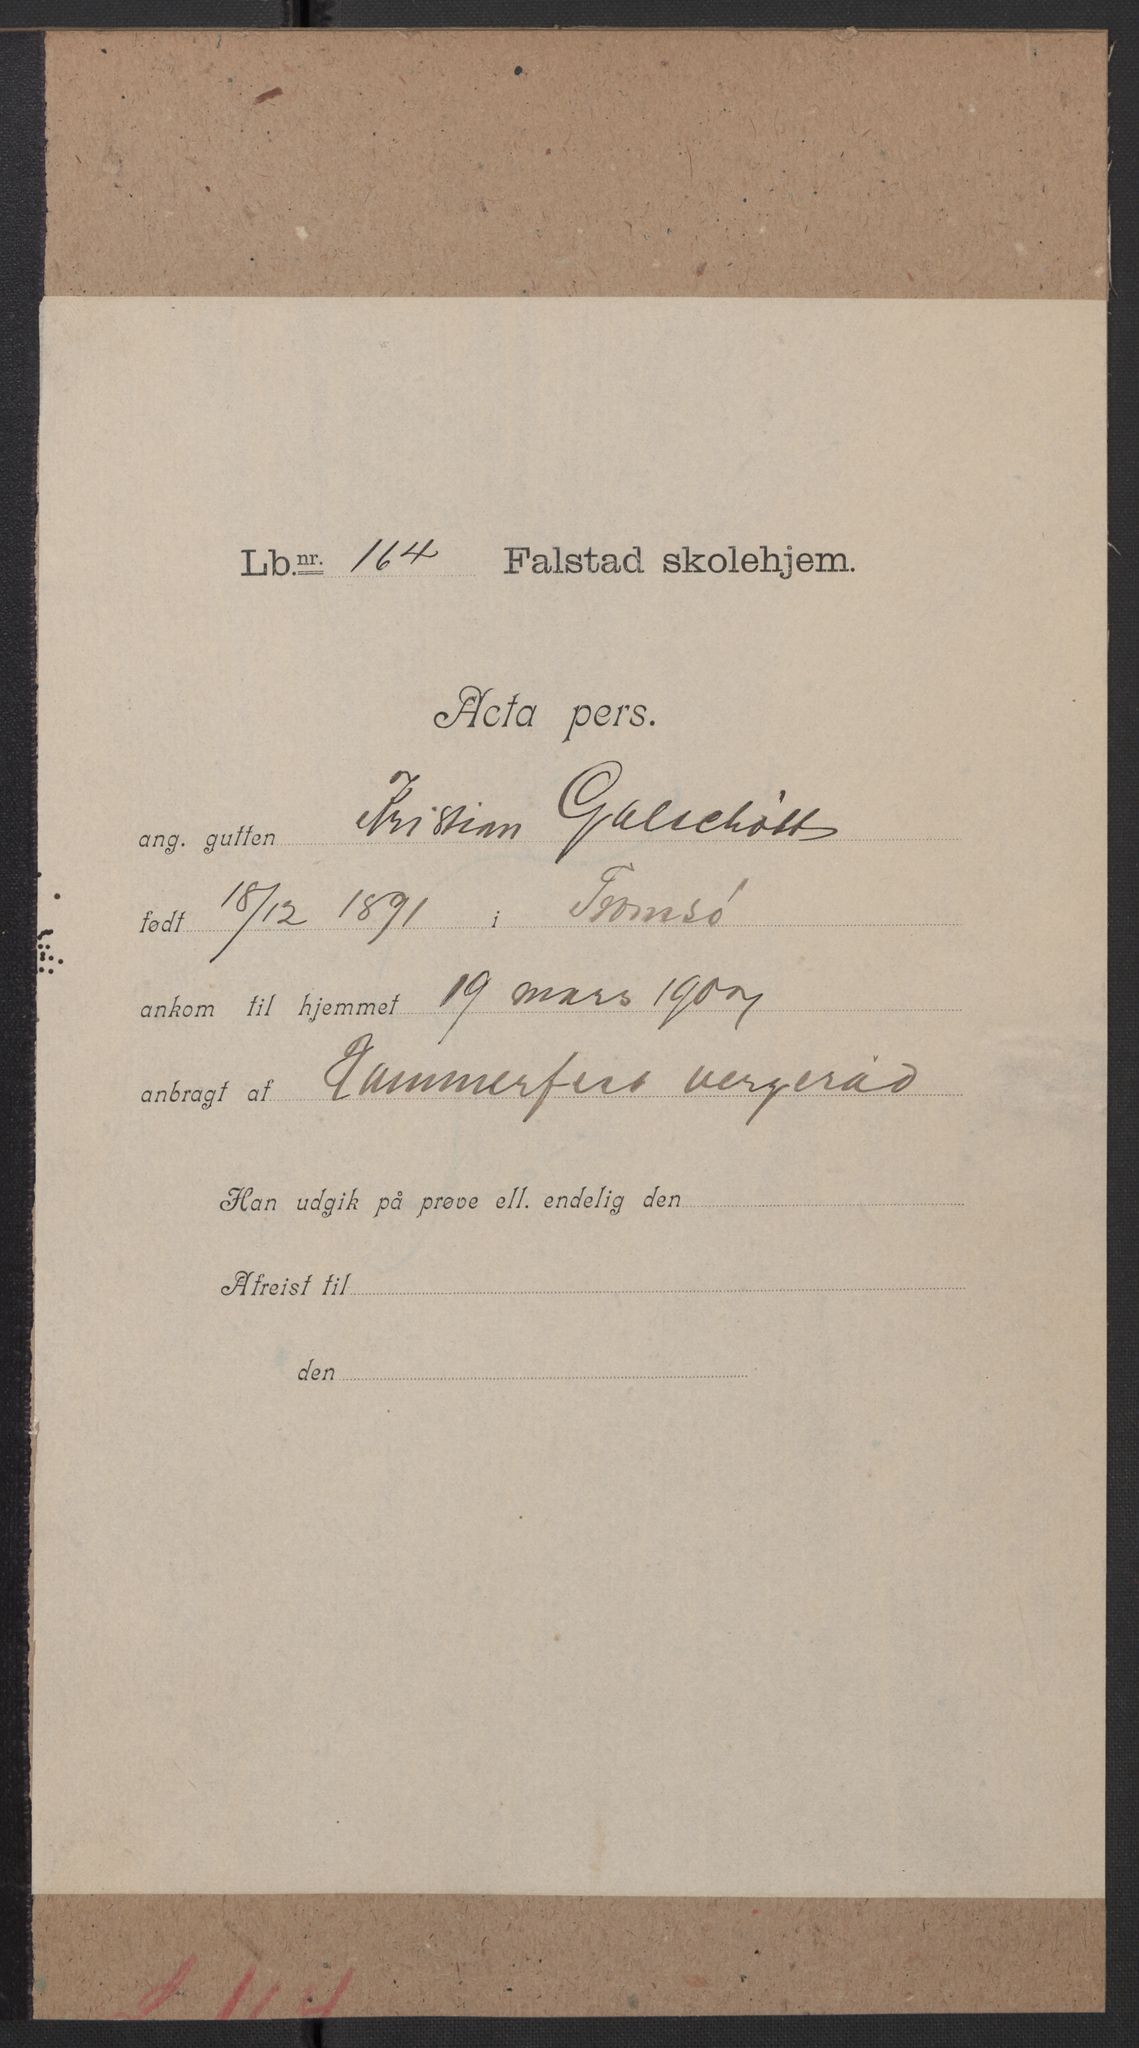 Lb.nr. 164 Falstad skolehjem.
Acta pers.
ang. gutten Kristian Galschött
født 18/12 1891 i Tromsö
ankom til hjemmet 19 mars 1907
anbragt af Hammerfest vergeråd
Han udgik på prøve ell. endelig den
Afreist til
den